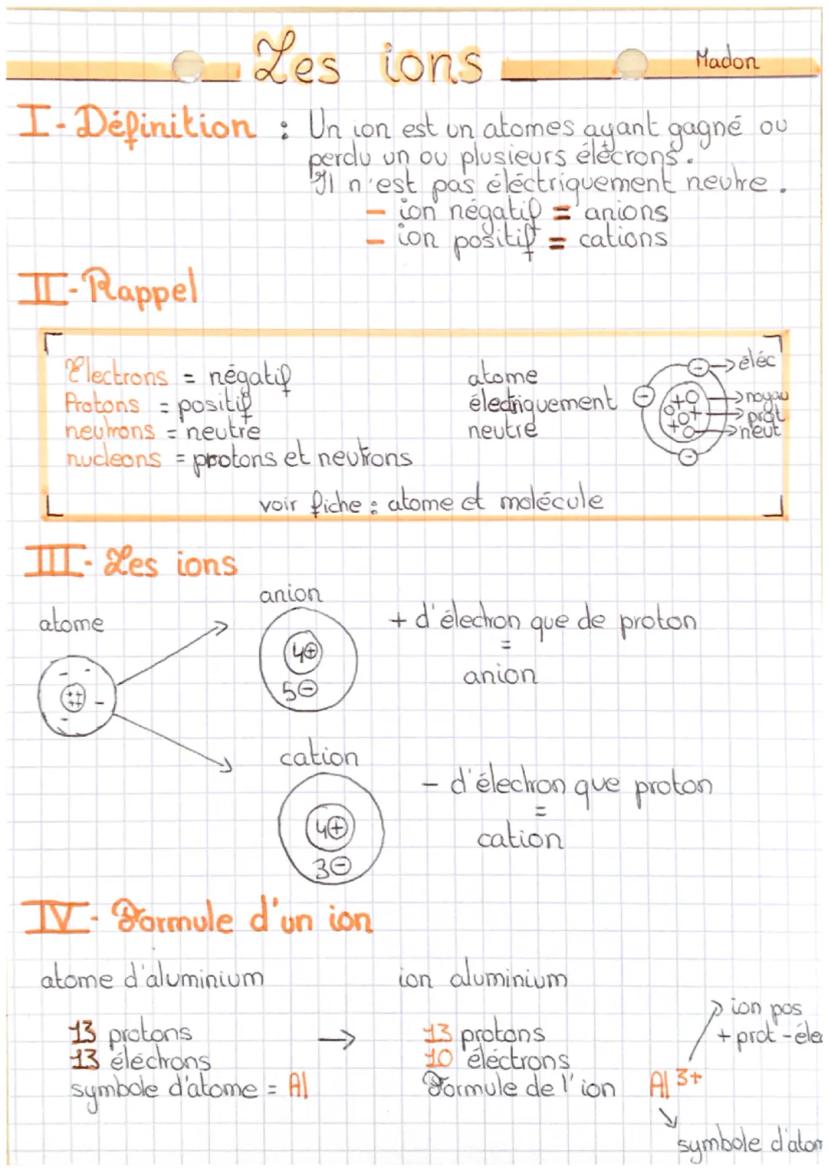 Les ions
Madon
I - Définition : Un ion est un atomes ayant gagné ou
perdu un ou plusieurs élécrons.
Il n'est pas éléctriquement neutre.
- ion négatif = anions
- ion positif = cations
II - Rappel
Electrons = négatif
Protons = positif
neutrons = neutre
nucleons = protons et neutrons
atome
électriquement
neutre
éléc
noyau
prot
neut
voir fiche : atome et molécule
III - Les ions
atome
anion
4+
5-
+ d'électron que de proton
=
anion
cation
4+
3-
- d'électron que proton
=
cation
IV - Formule d'un ion
atome d'aluminium
13 protons
13 éléctrons
symbole d'atome = Al
→
ion aluminium
13 protons
10 éléctrons
Formule de l'ion Al 3+
ion pos
+ prot - éle
symbole d'atom